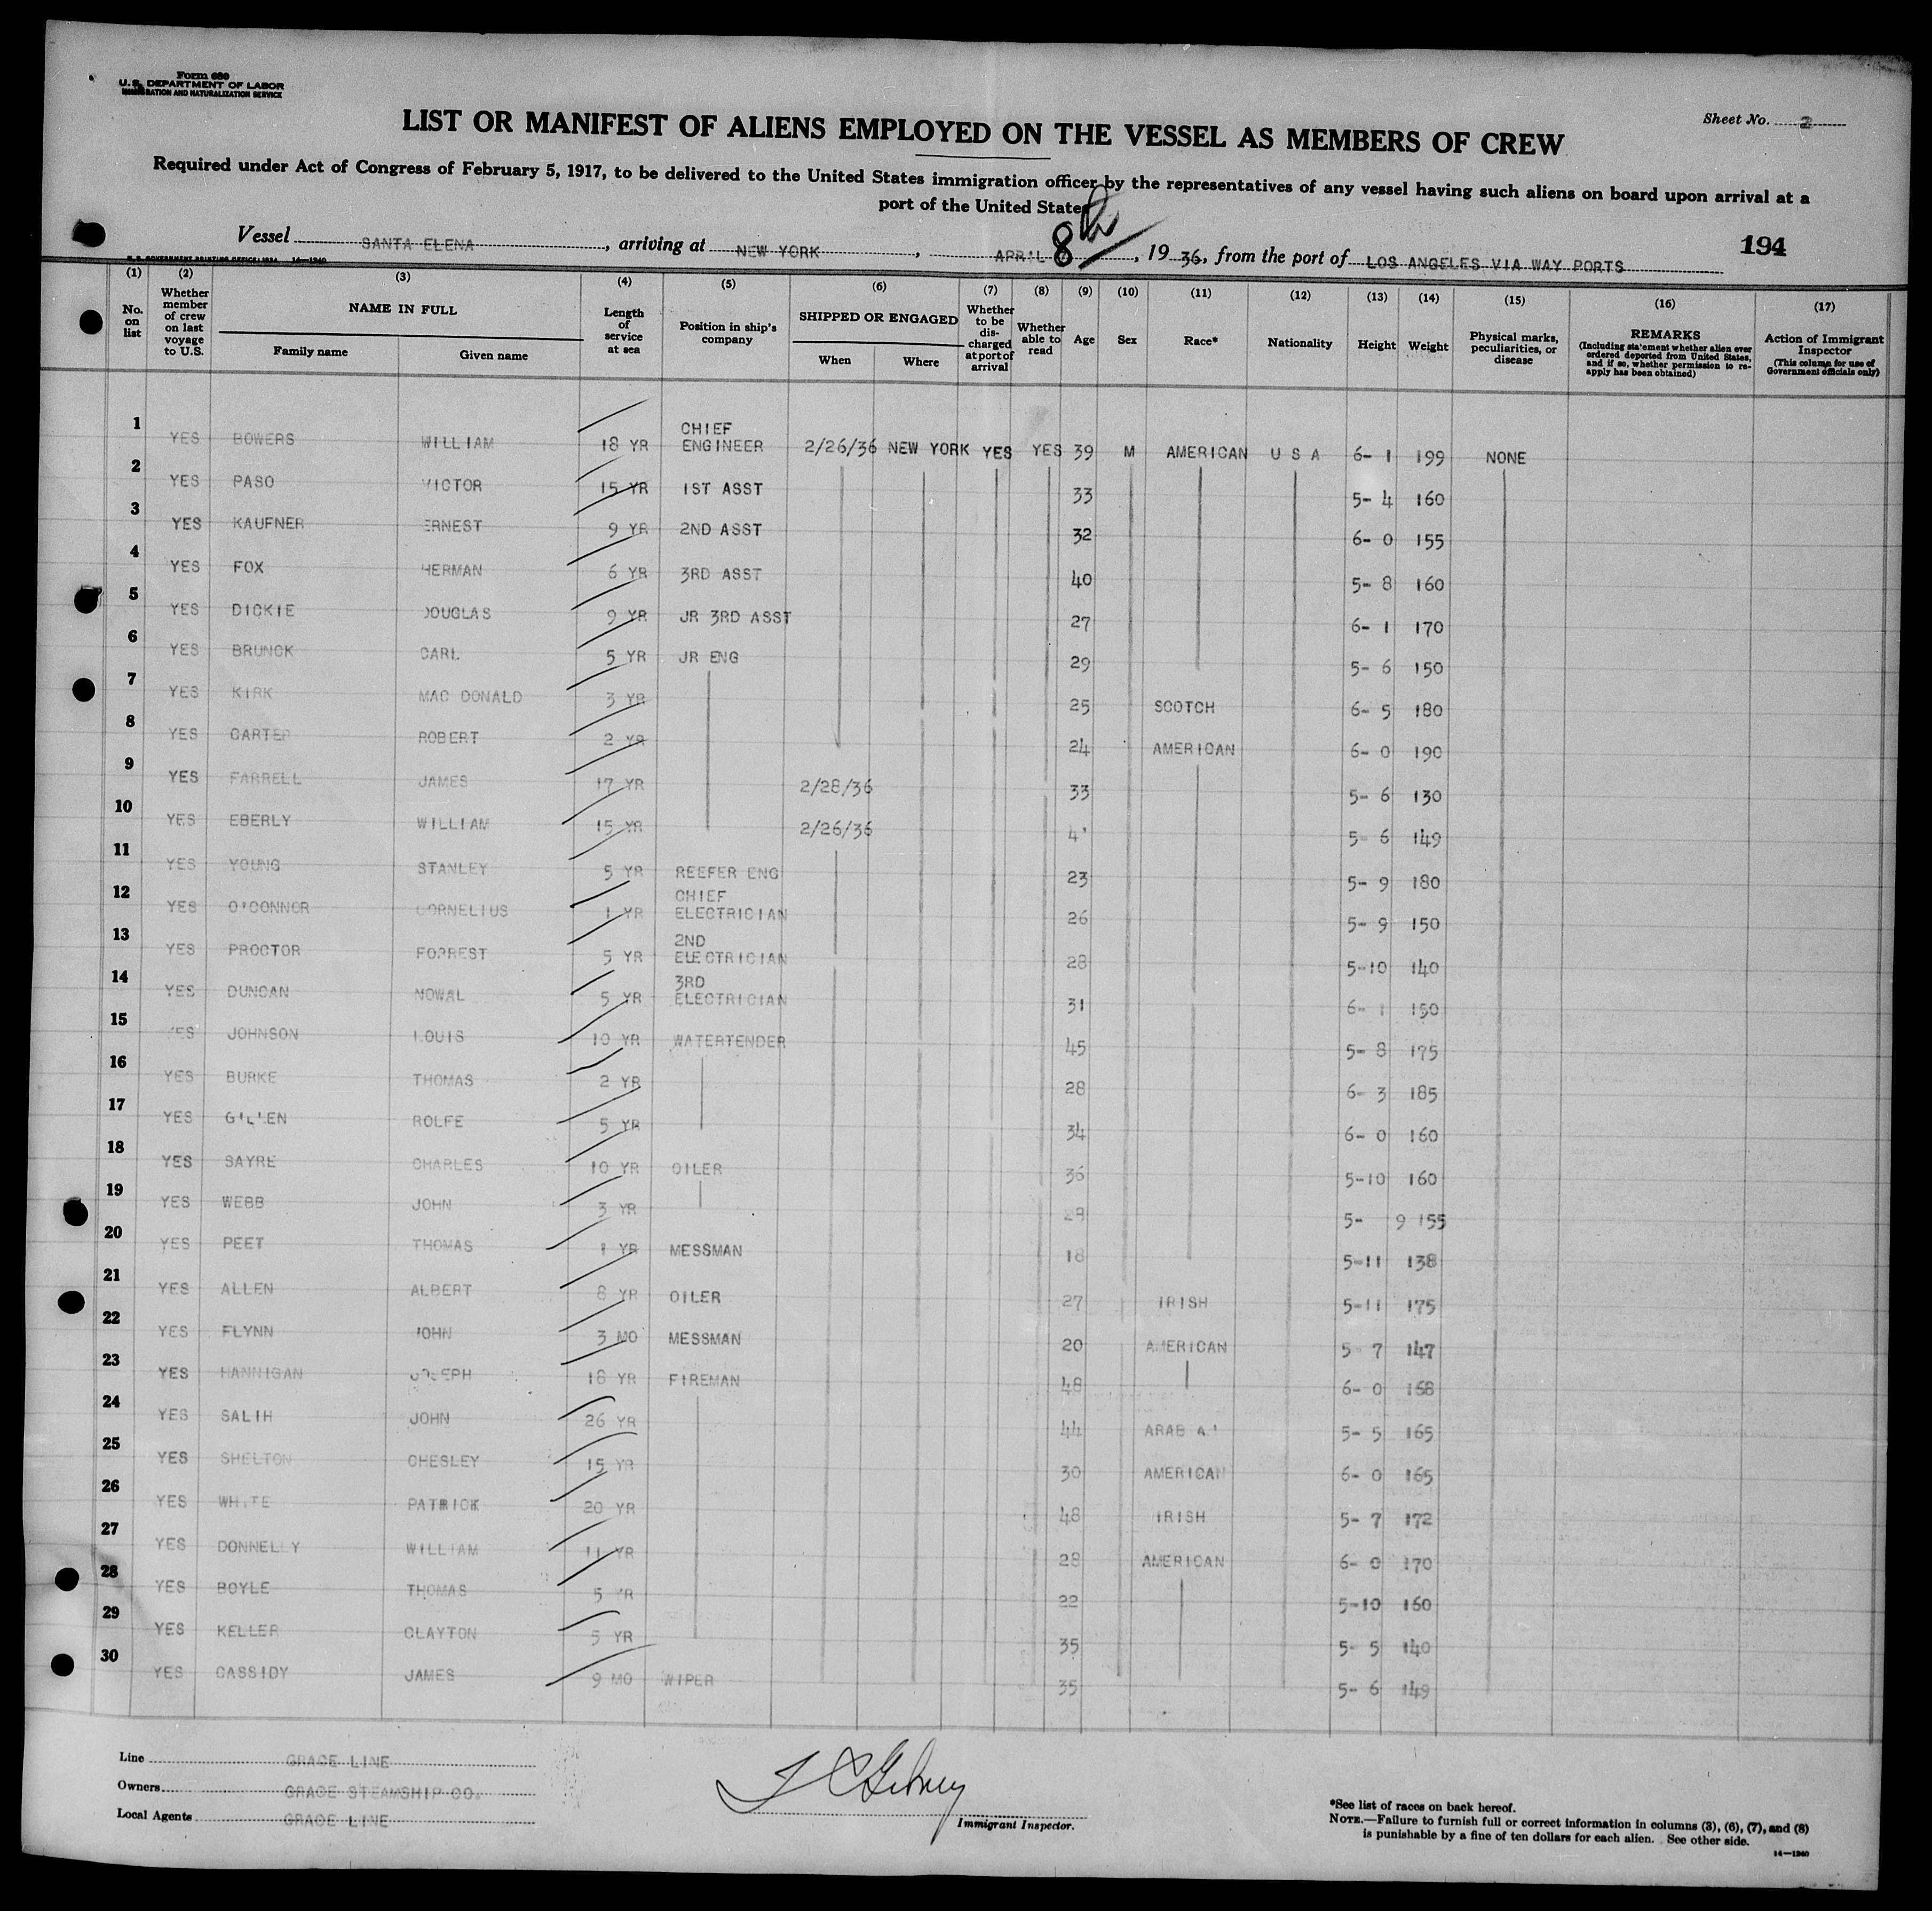 Form 680
U. S. DEPARTMENT OF LABOR
IMMIGRATION AND NATURALIZATION SERVICE
Sheet No. 2
LIST OR MANIFEST OF ALIENS EMPLOYED ON THE VESSEL AS MEMBERS OF CREW
Required under Act of Congress of February 5, 1917, to be delivered to the United States immigration officer by the representatives of any vessel having such aliens on board upon arrival at a
port of the United States
Vessel SANTA ELENA, arriving at NEW YORK, APRIL 8th, 1936, from the port of LOS ANGELES VIA WAY PORTS
194
U. S. GOVERNMENT PRINTING OFFICE: 1934 14—1240
(1) (2) (3) (4) (5) (6) (7) (8) (9) (10) (11) (12) (13) (14) (15) (16) (17)
No. on list
Whether member of crew on last voyage to U.S.
NAME IN FULL
Family name
Given name
Length of service at sea
Position in ship's company
SHIPPED OR ENGAGED
When
Where
Whether to be discharged at port of arrival
Whether able to read
Age
Sex
Race*
Nationality
Height
Weight
Physical marks, peculiarities, or disease
REMARKS
(Including statement whether alien ever ordered deported from United States, and if so, whether permission to re-apply has been obtained)
Action of Immigrant Inspector
(This column for use of Government officials only)
1 YES BOWERS WILLIAM 18 YR CHIEF ENGINEER 2/26/36 NEW YORK YES YES 39 M AMERICAN U S A 6- 1 199 NONE
2 YES PASO VICTOR 15 YR 1ST ASST 33 5- 4 160
3 YES KAUFNER ERNEST 9 YR 2ND ASST 32 6- 0 155
4 YES FOX HERMAN 6 YR 3RD ASST 40 5- 8 160
5 YES DICKIE DOUGLAS 9 YR JR 3RD ASST 27 6- 1 170
6 YES BRUNCK CARL 5 YR JR ENG 29 5- 6 150
7 YES KIRK MAC DONALD 3 YR 25 SCOTCH 6- 5 180
8 YES CARTER ROBERT 2 YR 24 AMERICAN 6- 0 190
9 YES FARRELL JAMES 17 YR 2/28/36 33 5- 6 130
10 YES EBERLY WILLIAM 15 YR 2/26/36 5 6 149
11 YES YOUNG STANLEY 5 YR REEFER ENG 23 5- 9 180
12 YES O'CONNOR CORNELIUS 1 YR CHIEF ELECTRICIAN 26 5- 9 150
13 YES PROCTOR FORREST 5 YR 2ND ELECTRICIAN 28 5-10 140
14 YES DUNCAN NOWAL 5 YR 3RD ELECTRICIAN 31 6- 1 150
15 YES JOHNSON LOUIS 10 YR WATERTENDER 45 5- 8 175
16 YES BURKE THOMAS 2 YR 28 6- 3 185
17 YES GILLEN ROLFE 5 YR 34 6- 0 160
18 YES SAYRE CHARLES 10 YR OILER 36 5-10 160
19 YES WEBB JOHN 3 YR 5- 9 155
20 YES PEET THOMAS 1 YR MESSMAN 18 5-11 138
21 YES ALLEN ALBERT 8 YR OILER 27 IRISH 5-11 175
22 YES FLYNN JOHN 3 MO MESSMAN 20 AMERICAN 5 7 147
23 YES HANNIGAN JOSEPH 18 YR FIREMAN 48 6- 0 168
24 YES SALIH JOHN 26 YR 44 ARAB 5- 5 165
25 YES SHELTON CHESLEY 15 YR 30 AMERICAN 6- 0 165
26 YES WHITE PATRICK 20 YR 48 IRISH 5- 7 172
27 YES DONNELLY WILLIAM 11 YR 28 AMERICAN 6- 0 170
28 YES BOYLE THOMAS 5 YR 22 5-10 160
29 YES KELLER CLAYTON 5 YR 35 5- 5 140
30 YES CASSIDY JAMES 9 MO WIPER 35 5- 6 149
Line GRACE LINE
Owners GRACE STEAMSHIP CO.
Local Agents GRACE LINE
Immigrant Inspector.
*See list of races on back hereof.
NOTE.—Failure to furnish full or correct information in columns (3), (6), (7), and (8)
is punishable by a fine of ten dollars for each alien. See other side.
14—1240